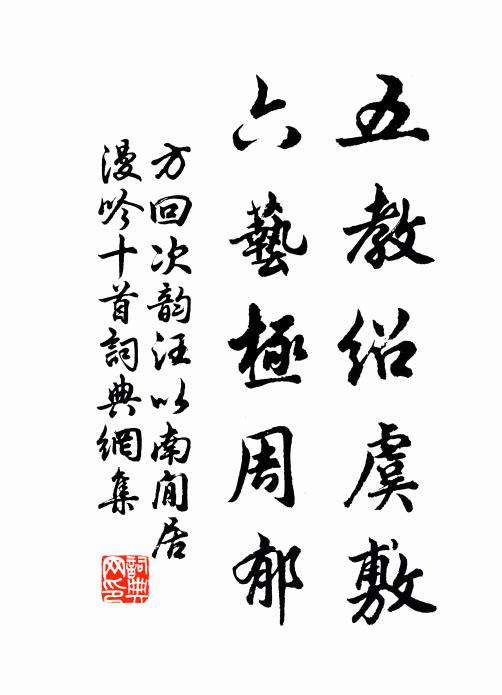 五教绍虞敷
六藝極周郁
方回次韵汪以南闲居
漫吟十首詞典網集
詞典網印